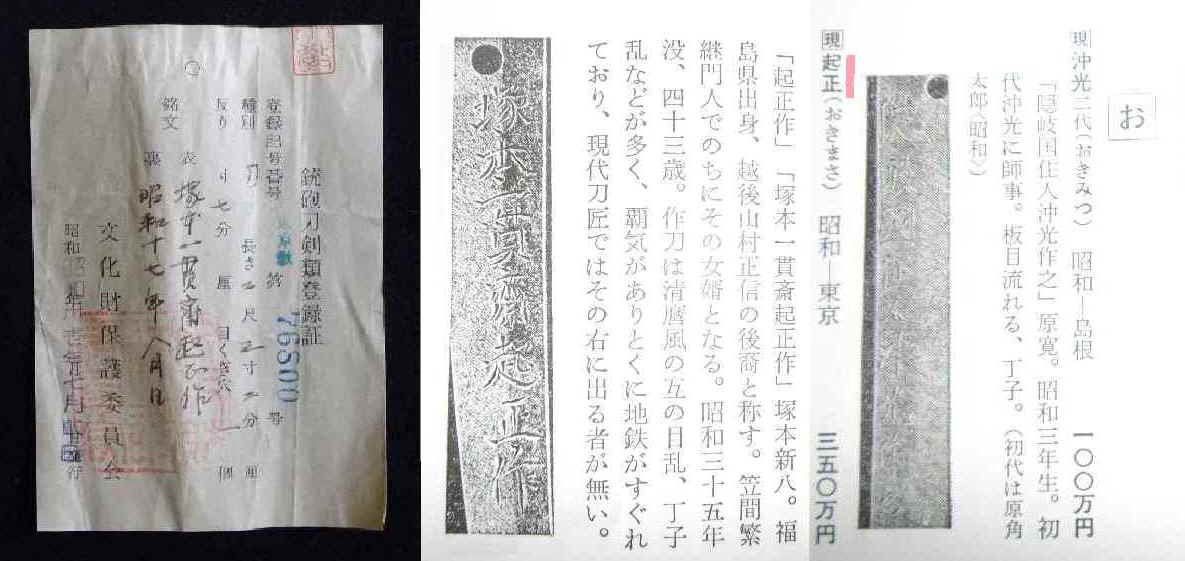 お
現 沖光二代(おきみつ) 昭和―島根 一〇〇万円
「隠岐国住人沖光作之」原寛。昭和三年生。初
代沖光に師事。板目流れる、丁子。(初代は原角
太郎〈昭和〉)
現 起正(おきまさ) 昭和―東京 三五〇万円
「起正作」「塚本一貫斎起正作」塚本新八。福
島県出身、越後山村正信の後裔と称す。笠間繁
継門人でのちにその女婿となる。昭和三十五年
没、四十三歳。作刀は清麿風の互の目乱、丁子
乱などが多く、覇気がありとくに地鉄がすぐれ
ており、現代刀匠ではその右に出る者が無い。
塚本一貫斎起正作
銃砲刀剣類登録証
登録記号番号 東京都 第 76500 号
種別 刀 長さ 二尺 二寸 二分 厘
反り 寸 七分 厘 目くぎ穴 一 個
銘文 表 塚本一貫斎起正作
裏 昭和十七年八月日
文化財保護委員会
昭和